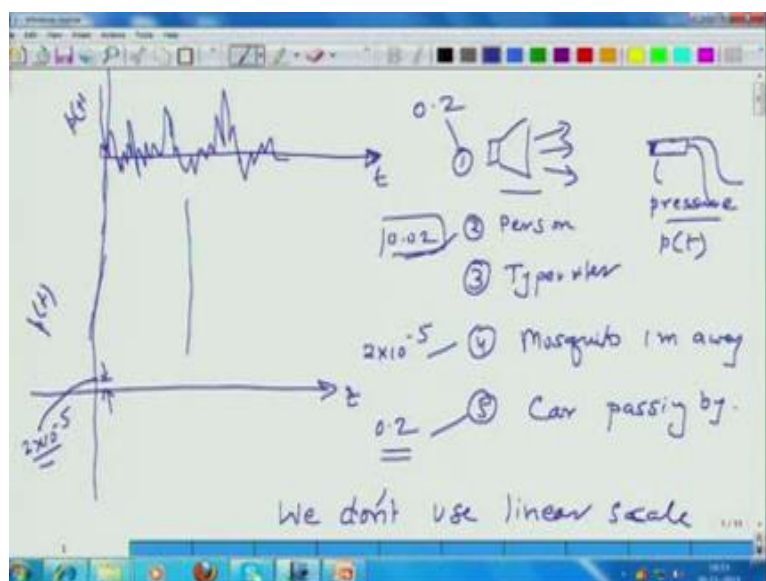 p(t)
t
0.2
①
pressure
p(t)
0.02 ② Person
③ Typewriter
2x10-5 ④ Mosquito 1m away
0.2 ⑤ Car passing by.
p(t)
t
2x10-5
We don't use linear scale